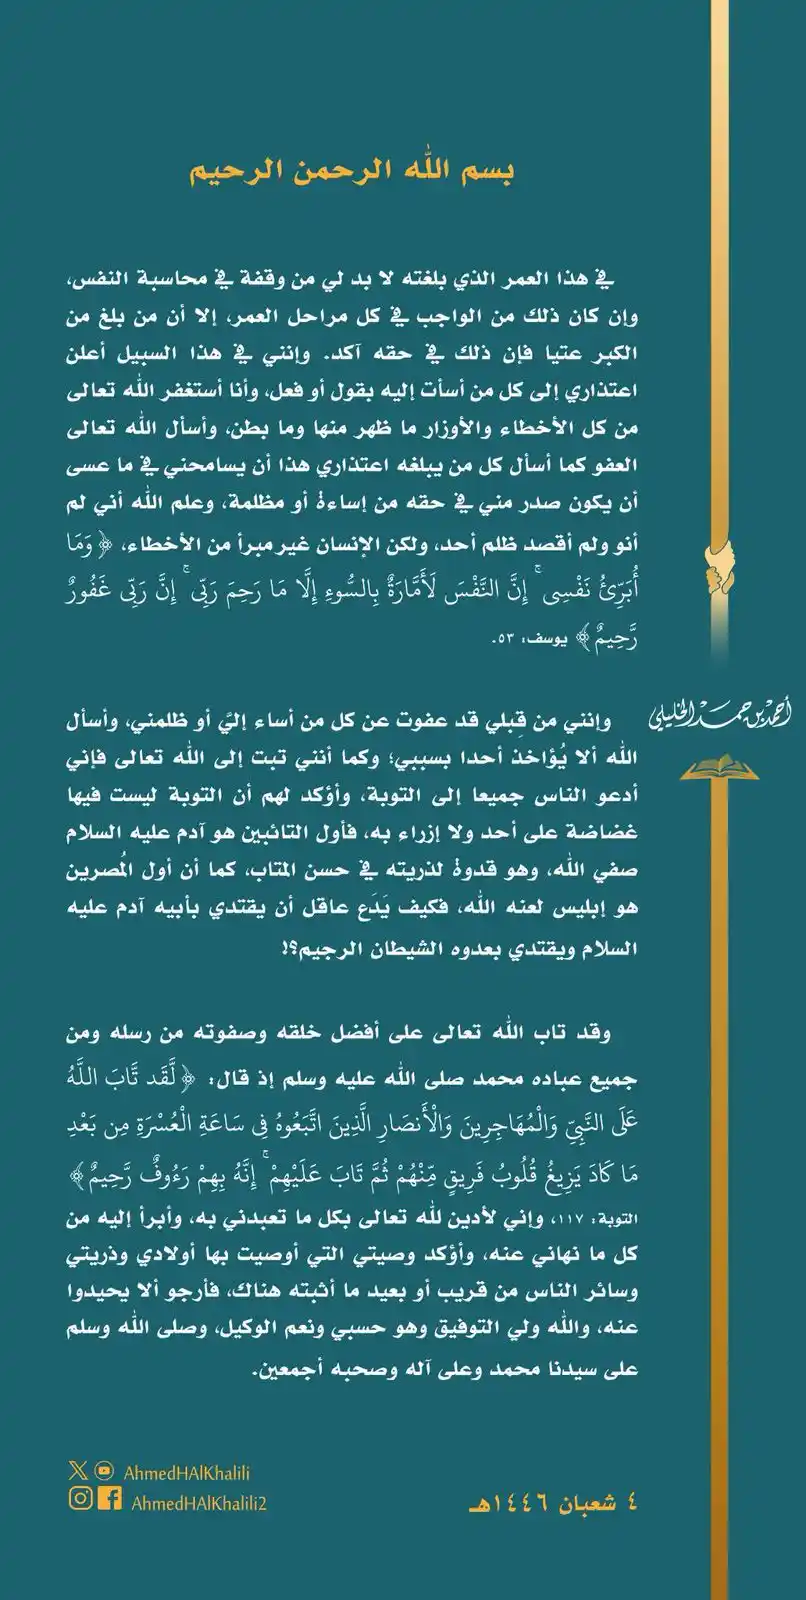 بسم الله الرحمن الرحيم
في هذا العمر الذي بلغته لا بد لي من وقفة في محاسبة النفس،
وإن كان ذلك من الواجب في كل مراحل العمر، إلا أن من بلغ من
الكبر عتيا فإن ذلك في حقه آكد. وإنني في هذا السبيل أعلن
اعتذاري إلى كل من أسأت إليه بقول أو فعل، وأنا أستغفر الله تعالى
من كل الأخطاء والأوزار ما ظهر منها وما بطن، وأسأل الله تعالى
العفو كما أسأل كل من يبلغه اعتذاري هذا أن يسامحني في ما عسى
أن يكون صدر مني في حقه من إساءة أو مظلمة، وعلم الله أني لم
أنو ولم أقصد ظلم أحد، ولكن الإنسان غير مبرأ من الأخطاء، ﴿وَمَا
أُبَرِّئُ نَفْسِى ۚ إِنَّ النَّفْسَ لَأَمَّارَةٌ بِالسُّوءِ إِلَّا مَا رَحِمَ رَبِّى ۚ إِنَّ رَبِّى غَفُورٌ
رَّحِيمٌ﴾ يوسف: ٥٣.
وإنني من قِبلي قد عفوت عن كل من أساء إليَّ أو ظلمني، وأسأل
الله ألا يُؤاخذ أحدا بسببي؛ وكما أنني تبت إلى الله تعالى فإني
أدعو الناس جميعا إلى التوبة، وأؤكد لهم أن التوبة ليست فيها
غضاضة على أحد ولا إزراء به، فأول التائبين هو آدم عليه السلام
صفي الله، وهو قدوة لذريته في حسن المتاب، كما أن أول المُصرين
هو إبليس لعنه الله، فكيف يَدَع عاقل أن يقتدي بأبيه آدم عليه
السلام ويقتدي بعدوه الشيطان الرجيم؟!
وقد تاب الله تعالى على أفضل خلقه وصفوته من رسله ومن
جميع عباده محمد صلى الله عليه وسلم إذ قال: ﴿لَّقَد تَّابَ اللَّهُ
عَلَى النَّبِىِّ وَالْمُهَاجِرِينَ وَالْأَنصَارِ الَّذِينَ اتَّبَعُوهُ فِى سَاعَةِ الْعُسْرَةِ مِن بَعْدِ
مَا كَادَ يَزِيغُ قُلُوبُ فَرِيقٍ مِّنْهُمْ ثُمَّ تَابَ عَلَيْهِمْ ۚ إِنَّهُ بِهِمْ رَءُوفٌ رَّحِيمٌ﴾
التوبة: ١١٧، وإني لأدين لله تعالى بكل ما تعبدني به، وأبرأ إليه من
كل ما نهاني عنه، وأؤكد وصيتي التي أوصيت بها أولادي وذريتي
وسائر الناس من قريب أو بعيد ما أثبته هناك، فأرجو ألا يحيدوا
عنه، والله ولي التوفيق وهو حسبي ونعم الوكيل، وصلى الله وسلم
على سيدنا محمد وعلى آله وصحبه أجمعين.
أحمد بن حمد الخليلي
٤ شعبان ١٤٤٦هـ
AhmedHAlKhalili
AhmedHAlKhalili2